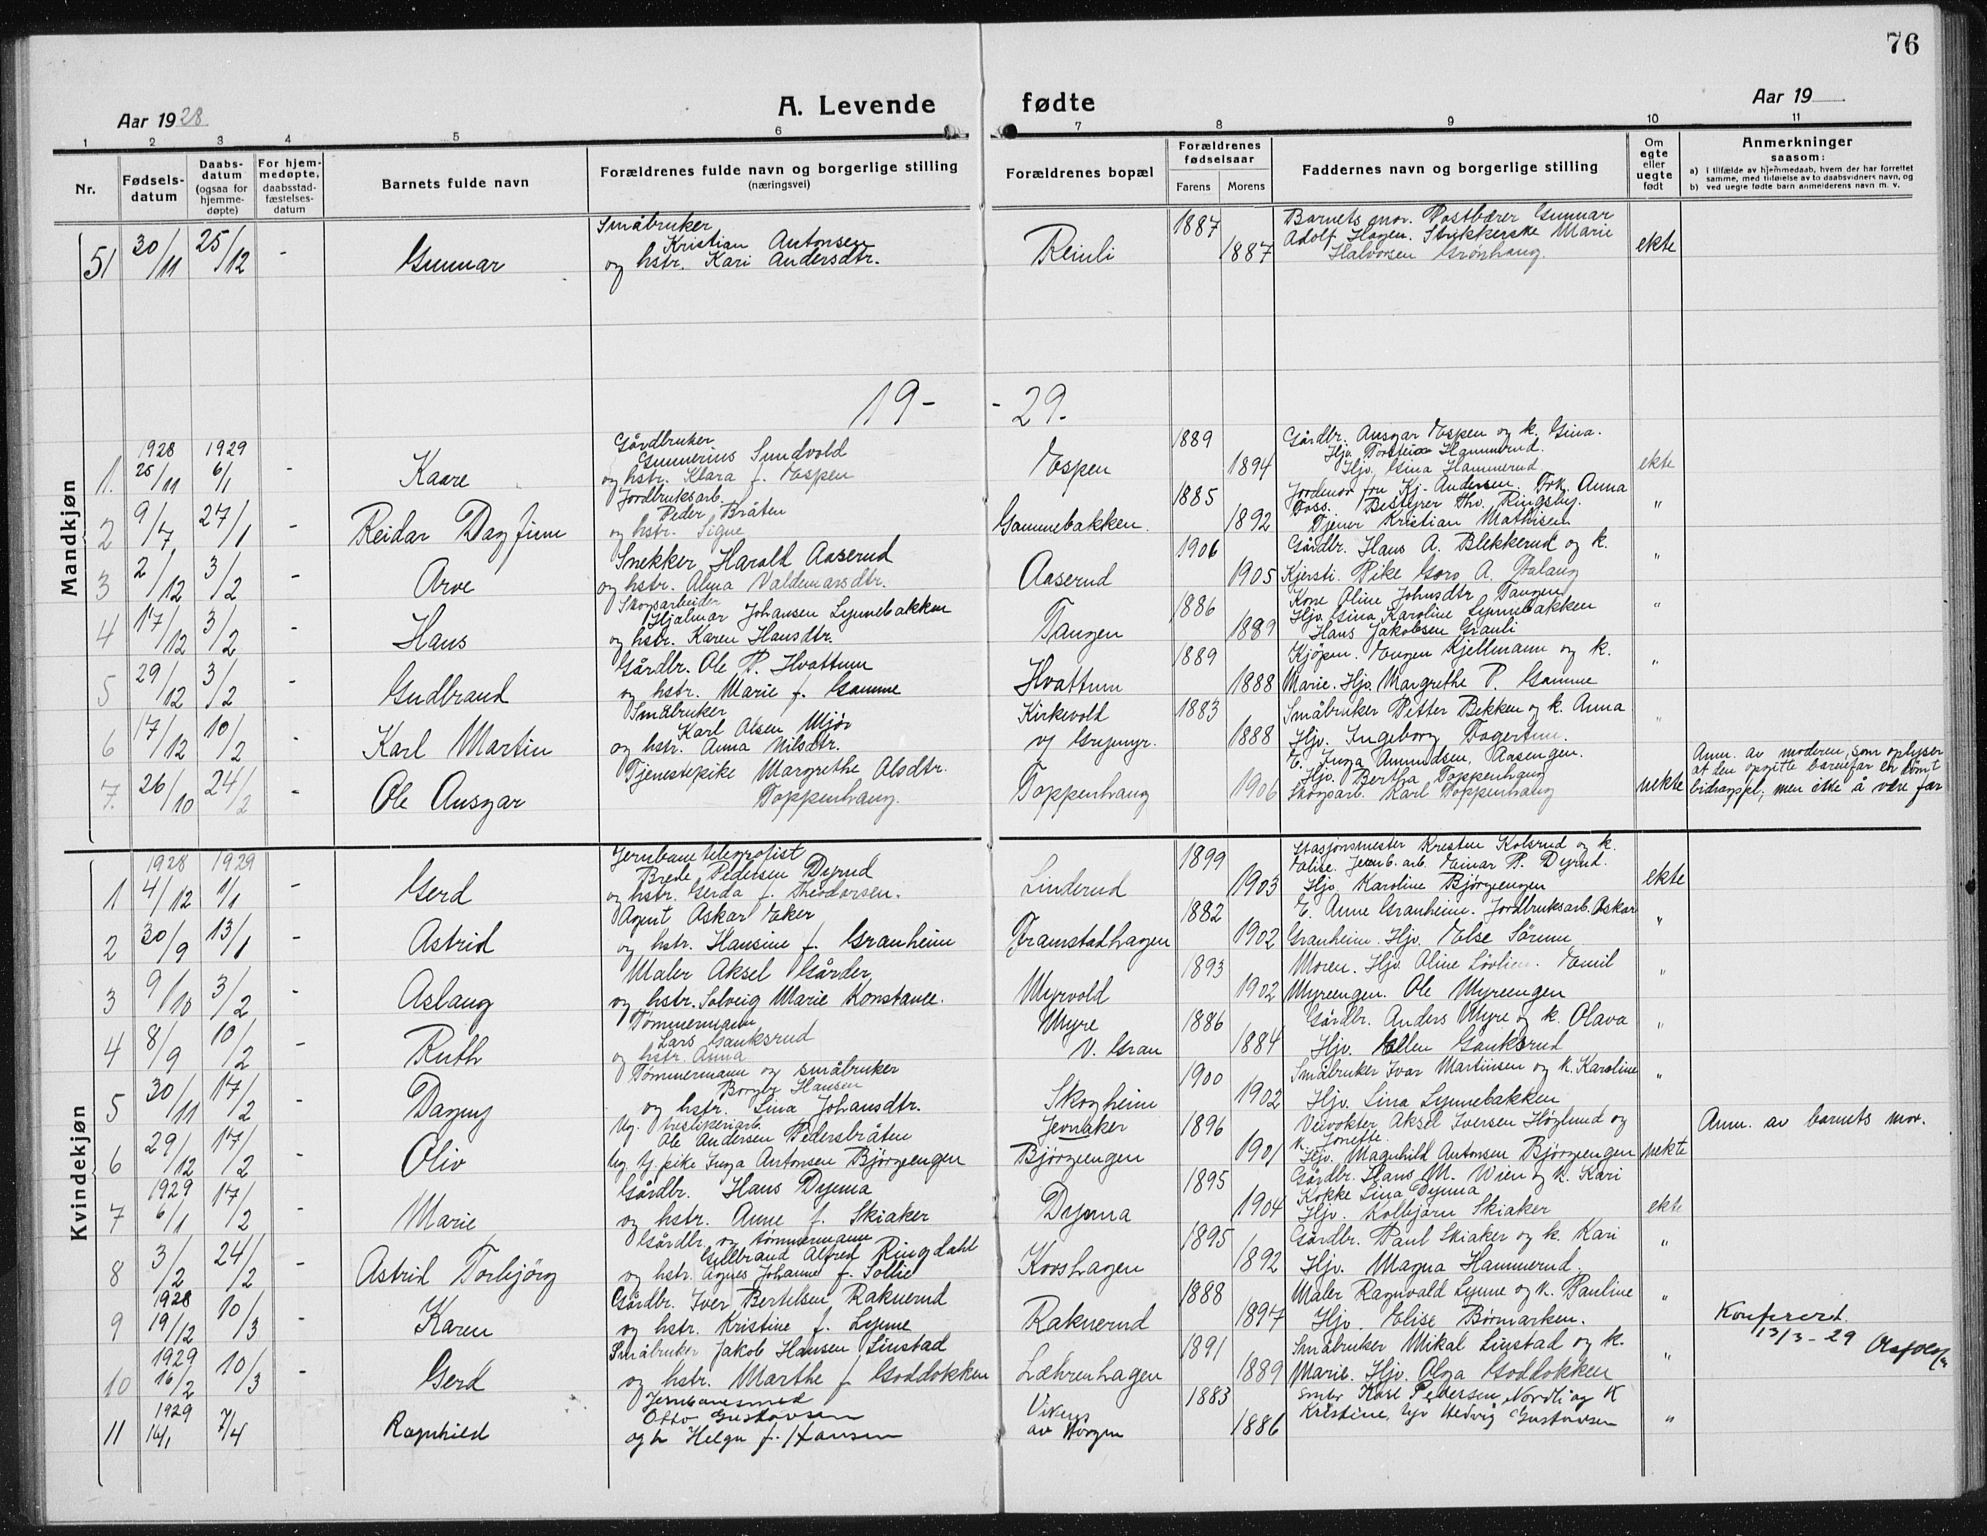 76
Aar 1928
A. Levende fødte
Aar 19
1 2 3 4 5 6 7 8 9 10 11
Nr.
Fødsels-datum
Daabs-datum (ogsaa for hjemme-døpte)
For hjem-medøpte, daabsstad-fæstelses-datum
Barnets fulde navn
Forældrenes fulde navn og borgerlige stilling (næringsvei)
Forældrenes bopæl
Forældrenes fødselsaar
Farens Morens
Faddernes navn og borgerlige stilling
Om egte eller uegte født
Anmerkninger saasom:
a) I tilfælde av hjemmedaab, hvem der har forrettet samme, med tilføielse av to daabsvidners navn, og
b) ved uegte fødte barn anmelderens navn m. v.
Mandkjøn
Småbruker
51 30/11 25/12 - Gunnar Kristian Antonsen
og hstr. Kari Andersdtr.
Reinli 1887 1887
Barnets mor. Postbærer Gunnar
Adolf Hagen. Stukkerske Marie
Halvorsen Grønhaug.
ekte
19- -29.
1928 1929
1. 25/11 6/1 - Kaare
Gårdbruker
Gunnerius Sundvold
og hstr. Klara f. Espen
Espen 1889 1894
Gårdbr. Ansgar Espen og k. Gina.
Hjv. Torstein Hammerud.
Hjv. Gina Hammerud
ekte
2 9/7 27/1 - Reidar Dagfinn
Jordbruksarb.
Peder Bråten
og hstr. Signe
Gammebakken. 1885 1892
Jordmor fru Kj. Andersen. Frk. Anna
Foss. Bestyrer Thv. Ringsby.
Tjener Kristian Mathisen
"
3 2/12 3/2 - Arve
Snekker Harald Aaserud
og hstr. Alma Valdemarsdtr.
Aaserud 1906 1905
Gårdbr. Hans A. Blekkerud og k.
Kjersti. Pike Goro A. Falang
"
4 17/12 3/2 - Hans
Skogsarbeider
Hjalmar Johansen Lynnebakken
og hstr. Karen Hansdtr.
Tangen 1886 1889
Kone Oline Johnsdtr Tangen
Hjv. Gina Karoline Lynnebakken
Hans Jakobsen Granli
"
5 29/12 3/2 - Gudbrand
Gårdbr. Ole P. Hvattum
og hstr. Marie f. Gamme
Hvattum 1889 1888
Kjøpm. Eugen Kjellmann og k.
Marie. Hjv. Margrethe P. Gamme
"
6 17/12 10/2 - Karl Martin
Småbruker
Karl Olsen Mjør
og hstr. Anna Nilsdtr.
Kirkevold
v/ Grymyr. 1883 1888
Småbruker Petter Bekken og k. Anna
Hjv. Ingeborg Fagertun.
"
7. 26/10 24/2 - Ole Ansgar
Tjenestepike Margrethe Olsdtr.
Toppenhaug.
Toppenhaug 1906
E. Inga Amundsen, Aasengen.
Hjv. Bertha Toppenhaug
Skogsarb. Karl Toppenhaug
uekte
Anm. av moderen, som oplyser
at den opgitte barnefar er dømt
bidragspl., men ikke å være far
Kvindekjøn
1928 1929
1 4/12 1/1 - Gerd
Jernbanetelegrafist
Brede Pedersen Dynud
og hstr. Gerda f. Theodorsen.
Linderud 1899 1903
Stasjonsmester Kresten Kolsrud og k.
Valise. Jernb. arb. Einar P. Dynud.
Hjv. Karoline Bjørgeengen
ekte
2 30/9 13/1 - Astrid
Agent Askar Eker
og hstr. Hansine f. Granheim
Framstadhagen 1882 1902
E. Anne Granheim. Jordbruksarb. Oskar
Granheim. Hjv. Else Sørum
"
3 9/10 3/2 - Aslaug
Maler Aksel Gårder
og hstr. Solveig Marie Konstance.
Myrvold 1893 1902
Moren. Hjv. Oline Løvlien. Emil
Myreengen. Ole Myreengen
"
4 8/9 10/2 - Ruth
Tømmermann
Lars Gauksrud
og hstr. Anna
Myre
V. Gran 1886 1884
Gårdbr. Anders Myre og k. Olava
Hjv. Ellen Gauksrud
"
5 30/11 17/2 - Dagny
Tømmermann og småbruker
Borger Hansen
og hstr. Lina Johansdtr.
Skogheim 1900 1902
Småbruker Ivar Martinsen og k. Karoline
Hjv. Lina Lynnebakken
"
6 29/12 17/2 - Oliv
Ug. bestikkarb.
Ole Andersen Pedersbråten
ug. tj. pike Inga Antonsen Bjørgeengen
Jevnaker
Bjørgeengen 1896 1901
Veivokter Aksel Iversen Höglund og
k. Jonette.
Hjv. Magnhild Antonsen Bjørgeengen
uekte
Anm. av barnets mor.
1929
7 6/1 17/2 - Marie
Gårdbr. Hans Dynna
og hstr. Anne f. Skiaker
Dynna 1895 1904
Gårdbr. Hans M. Wien og k. Kari
Kokke Lina Dynna
Hjv. Kolbjørn Skiaker
ekte
8 3/2 24/2 - Astrid Torbjörg
Gårdbr. og tømmermann
Gulbrand Alfred Ringdahl
og hstr. Agnes Johanne f. Sollie
Korshagen 1895 1892
Gårdbr. Paul Skiaker og k. Kari
Hjv. Magna Hammerud.
"
1928
9 19/12 10/3 - Karen
Gårdbr. Iver Bertelsen Raknerud
og hstr. Kristine f. Lynne
Raknerud 1888 1897
Maler Ragnvald Lynne og k. Pauline
Hjv. Elise Børmarken.
"
Konferert
13/3-29
1929
10 16/2 10/3 - Gerd
Småbruker Jakob Hansen Linstad
og hstr. Marthe f. Goddokken
Læhrenhagen 1891 1889
Småbruker Mikal Linstad og k.
Marie. Hjv. Olga Goddokken
"
1929
11 16/1 7/4 Ragnhild
Jernbanesmed
Otto Gustavsen
og h Helga f. Hansen
Vikens
av Horgen 1883 1886
Småbr Karl Pedersen Nordli og K
Kristine, Hjv Hedvig Gustavsen
"